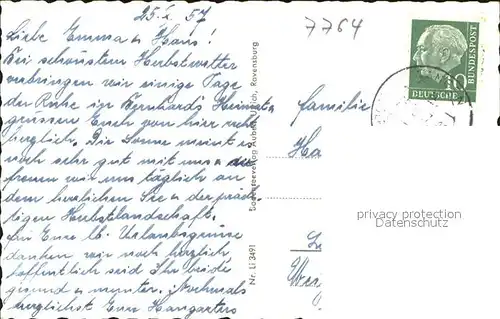 25. X. 57
7764
Liebe Emma u. Hans!
Bei schönstem Herbstwetter
verbringen wir einige Tage
der Ruhe in Bernhards Heimat u.
grüssen Euch von hier recht
herzlich. Die Sonne meint es
noch sehr gut mit uns u. wir
freuen wir uns täglich an
dem herrlichen See u. der präch-
tigen Herbstlandschaft.
für Eure lb. Urlaubsgrüsse
danken wir noch herzlich
hoffentlich seid Ihr beide
gesund u. munter. Nochmals
herzlichst Eure Hangarters
Familie
Ha
Nr. Li 3491
Ravensburg
DEUTSCHE BUNDESPOST
10
privacy protection
Datenschutz